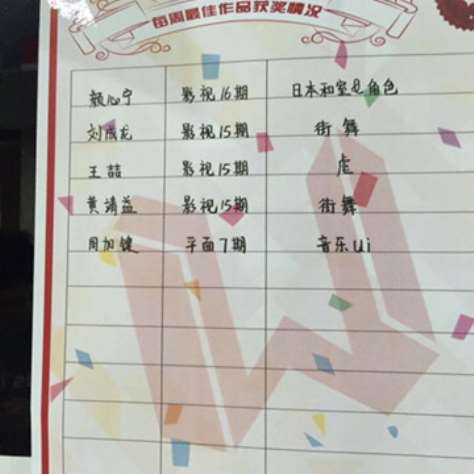 每周最佳作品获奖情况
颜心宁 影视16期 日本和室及角色
刘成龙 影视15期 街舞
王喆 影视15期 虎
黄靖益 影视15期 街舞
周加健 平面7期 音乐ui